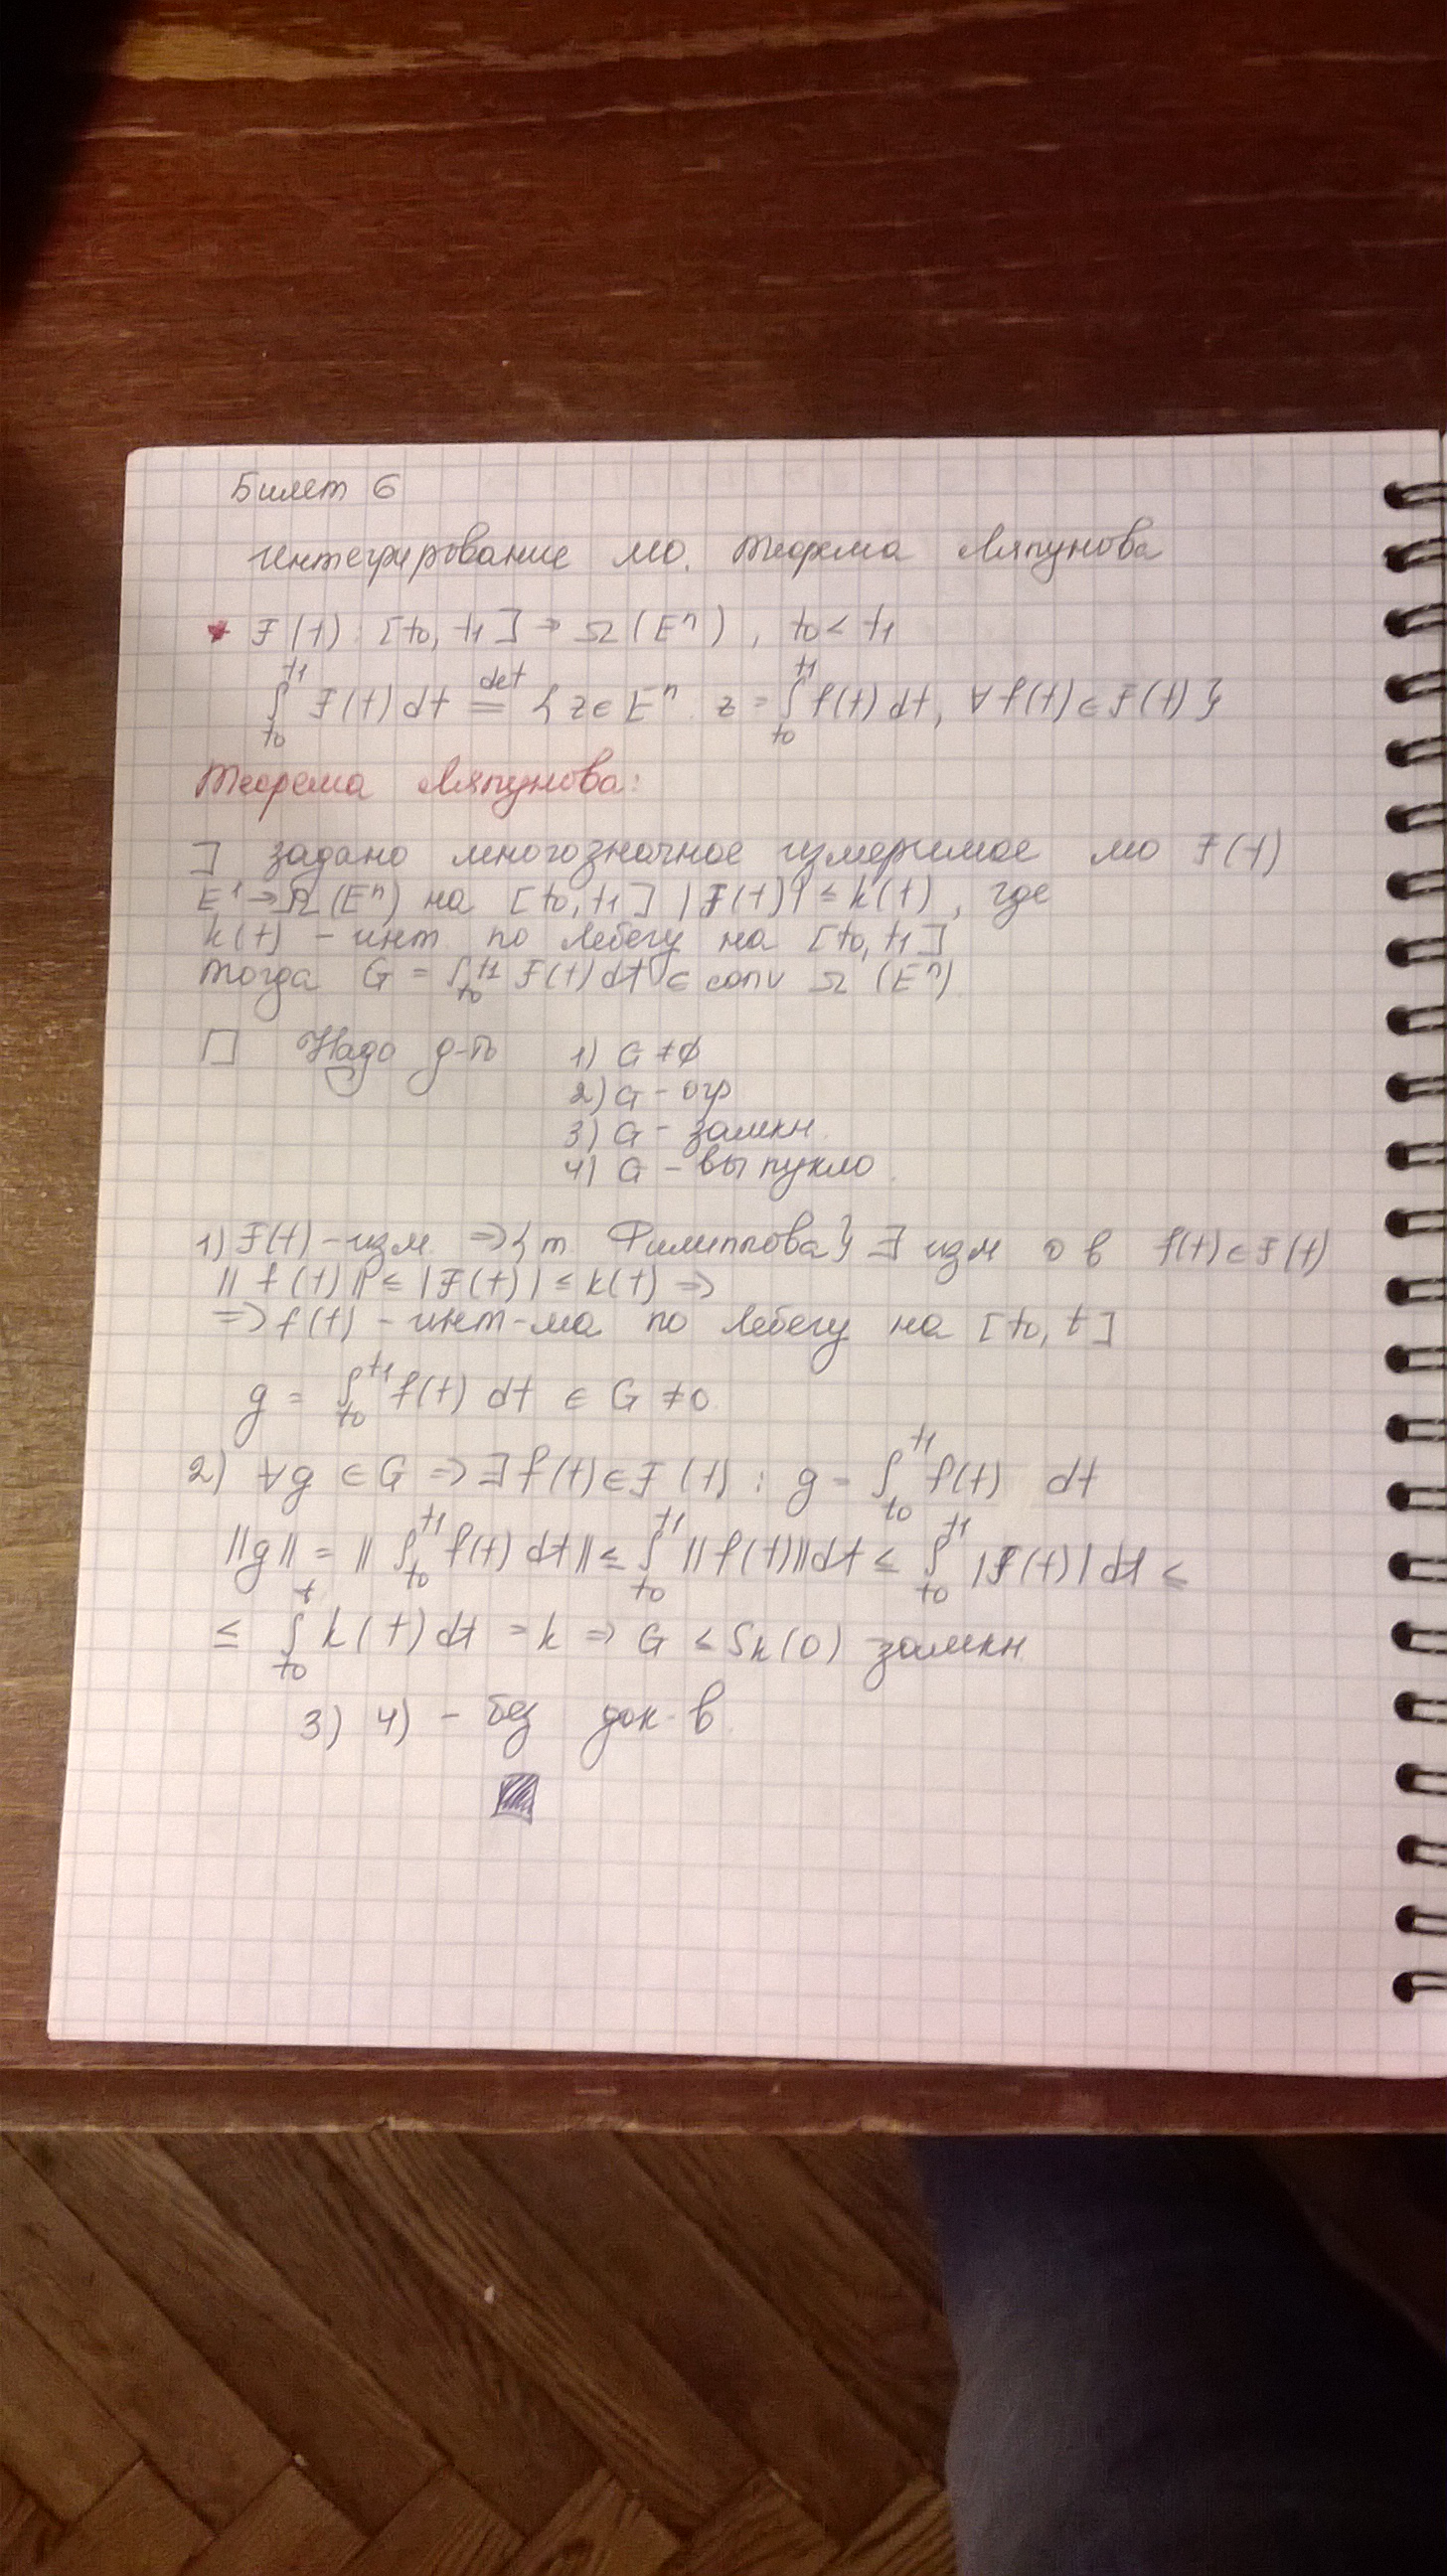 Билет 6
Интегрирование мо. Теорема Ляпунова
* F(t): [t0, t1] → Ω(E^n), t0 < t1
∫_{t0}^{t1} F(t)dt \stackrel{def}{=} {z∈E^n. z = ∫_{t0}^{t1} f(t)dt, ∀f(t)∈F(t)}
Теорема Ляпунова:
] задано многозначное измеримое мо F(t)
E^1→Ω(E^n) на [t0, t1] |F(t)| ≤ k(t), где
k(t) – инт. по Лебегу на [t0, t1]
Тогда G = ∫_{t0}^{t1} F(t)dt ∈ conv Ω(E^n)
□ Надо д-ть 1) G ≠ ∅
2) G – огр
3) G – замкн.
4) G – выпукло.
1) F(t) – изм. ⇒ {т. Филиппова} ∃ изм о в f(t)∈F(t)
||f(t)|| ≤ |F(t)| ≤ k(t) ⇒
⇒ f(t) – инт-ма по Лебегу на [t0, t]
g = ∫_{t0}^{t1} f(t) dt ∈ G ≠ 0.
2) ∀g ∈ G ⇒ ∃f(t)∈F(t) : g = ∫_{t0}^{t1} f(t) dt
||g|| = ||∫_{t0}^{t1} f(t)dt|| ≤ ∫_{t0}^{t1} ||f(t)||dt ≤ ∫_{t0}^{t1} |F(t)|dt ≤
≤ ∫_{t0}^{t} k(t)dt = k ⇒ G ≤ S_k(0) замкн.
3) 4) – без док-в.